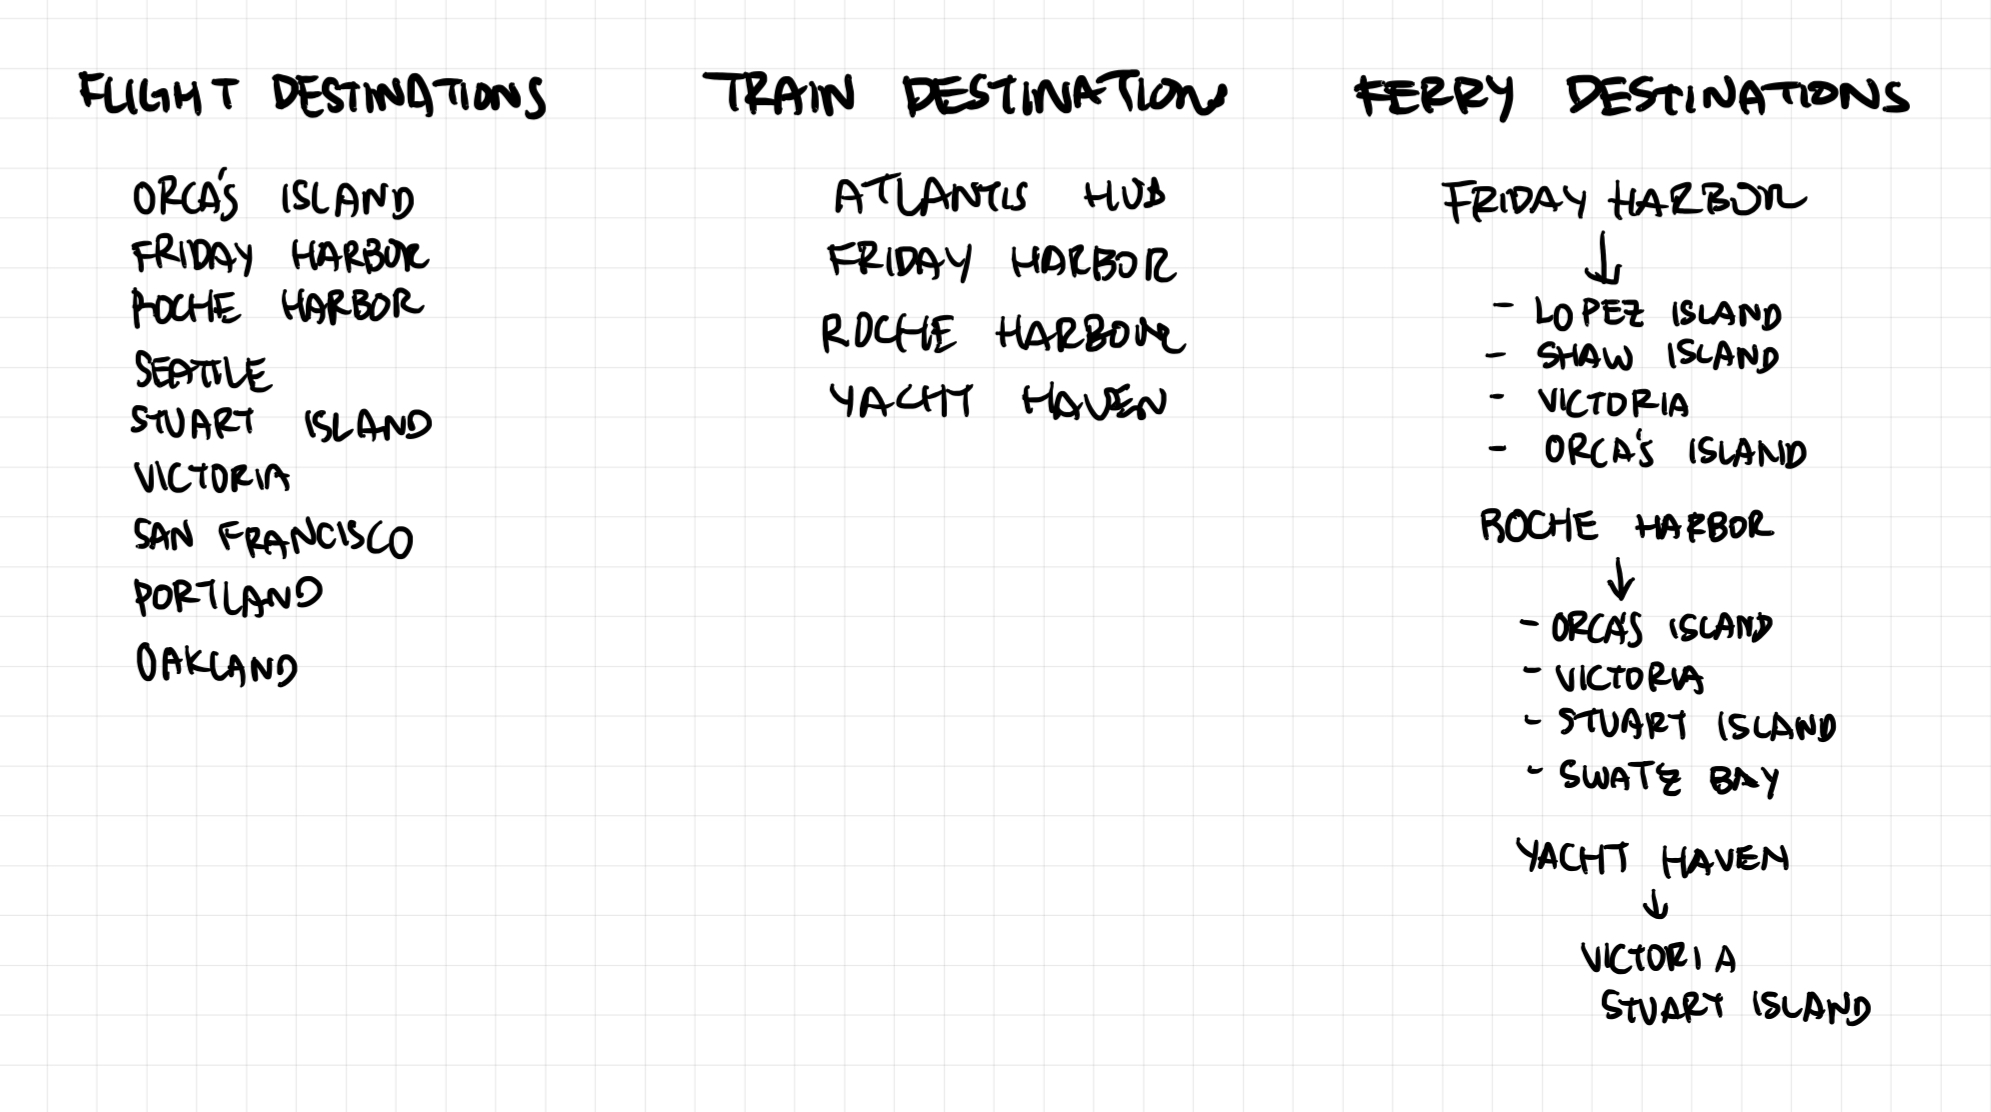 FLIGHT DESTINATIONS
ORCA'S ISLAND
FRIDAY HARBOR
ROCHE HARBOR
SEATTLE
STUART ISLAND
VICTORIA
SAN FRANCISCO
PORTLAND
OAKLAND
TRAIN DESTINATIONS
ATLANTIS HUB
FRIDAY HARBOR
ROCHE HARBOR
YACHT HAVEN
FERRY DESTINATIONS
FRIDAY HARBOR
↓
- LOPEZ ISLAND
- SHAW ISLAND
- VICTORIA
- ORCA'S ISLAND
ROCHE HARBOR
↓
- ORCA'S ISLAND
- VICTORIA
- STUART ISLAND
- SWATZ BAY
YACHT HAVEN
↓
VICTORIA
STUART ISLAND